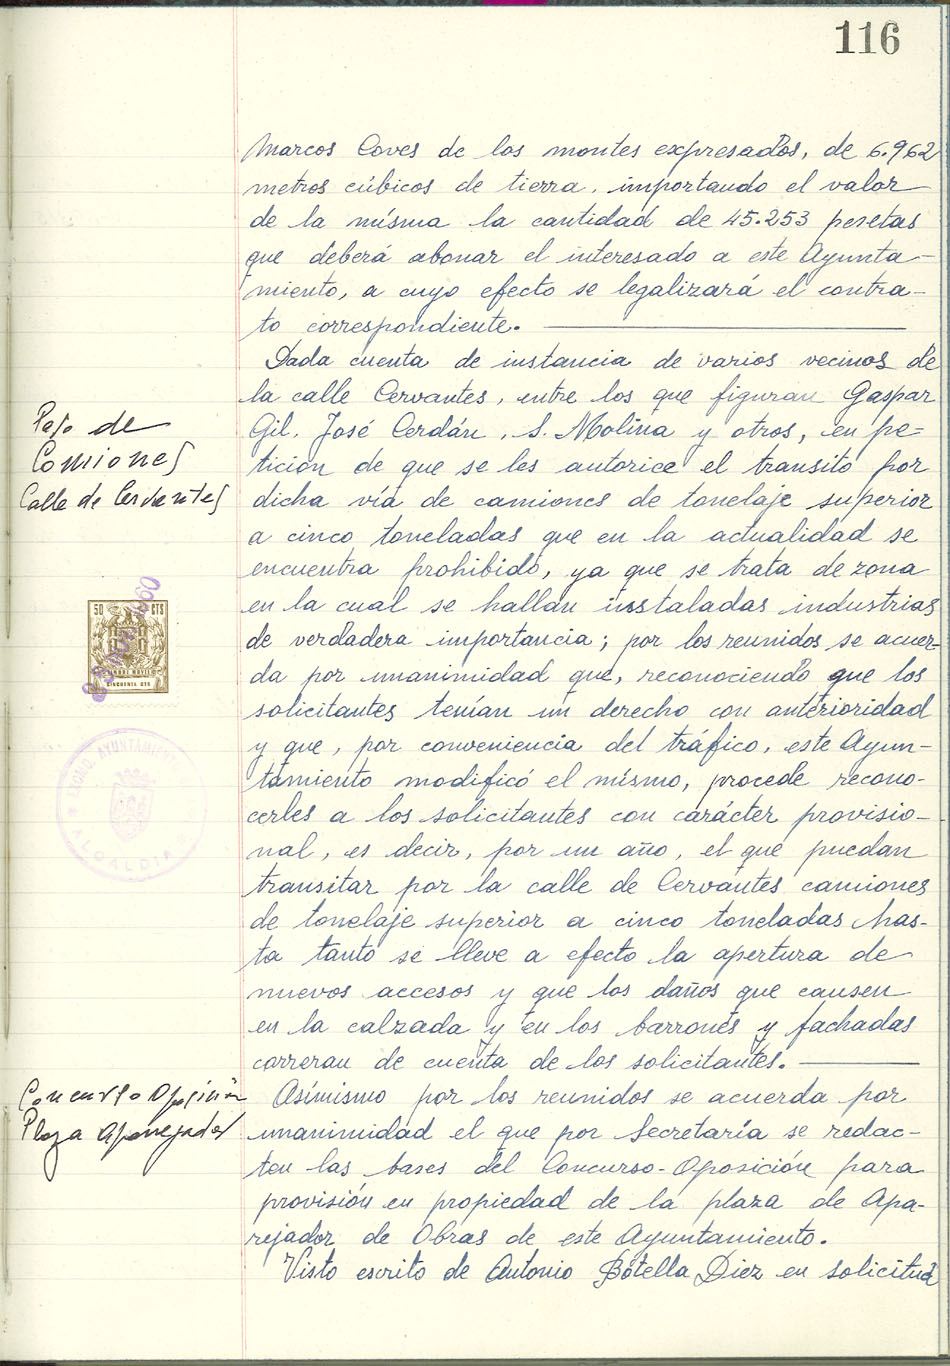 116
Marcos Coves de los montes expresados, de 6.962
metros cúbicos de tierra, importando el valor
de la misma la cantidad de 45.253 pesetas
que deberá abonar el interesado a este Ayunta-
miento, a cuyo efecto se legalizará el contra-
to correspondiente.
Dada cuenta de instancia de varios vecinos de
la calle Cervantes, entre los que figuran Gaspar
Gil, José Cerdán, S. Molina y otros, en pe-
tición de que se les autorice el transito por
dicha vía de camiones de tonelaje superior
a cinco toneladas que en la actualidad se
encuentra prohibido, ya que se trata de zona
en la cual se hallan instaladas industrias
de verdadera importancia; por los reunidos se acuer-
da por unanimidad que, reconociendo que los
solicitantes tenían un derecho con anterioridad
y que, por conveniencia del tráfico, este Ayun-
tamiento modificó el mismo, procede recono-
cerles a los solicitantes con carácter provisio-
nal, es decir, por un año, el que puedan
transitar por la calle de Cervantes camiones
de tonelaje superior a cinco toneladas has-
ta tanto se lleve a efecto la apertura de
nuevos accesos y que los daños que causen
en la calzada y en los barrones y fachadas
correran de cuenta de los solicitantes.
Asimismo por los reunidos se acuerda por
unanimidad el que por Secretaría se redac-
ten las bases del Concurso-Oposición para
provisión en propiedad de la plaza de Apa-
rejador de Obras de este Ayuntamiento.
Visto escrito de Antonio Botella Diez en solicitud
Paso de
Camiones
Calle de Cervantes
50 CTS
CINCUENTA CTS
EXCMO. AYUNTAMIENTO
ALCALDIA
Concurso Oposición
Plaza Aparejador